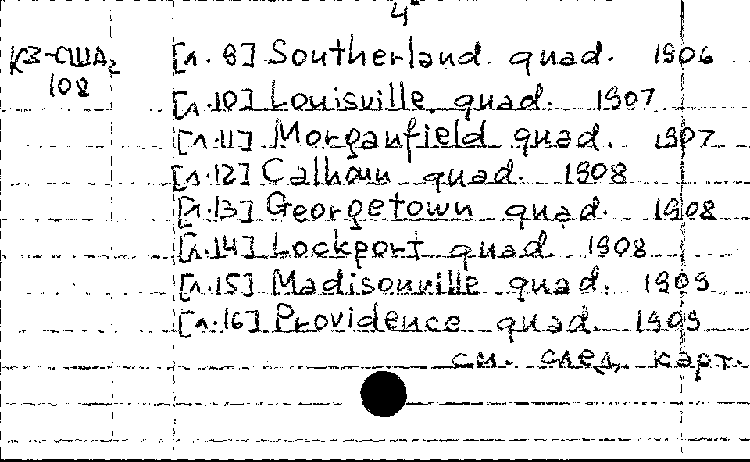 4
К3-США2 [л. 8] Southerland quad. 1906
108
[л.10] Louisville quad. 1907
[л.11] Morganfield quad. 1907
[л.12] Calhoun quad. 1908
[л.13] Georgetown quad. 1908
[л.14] Lockport quad 1908
[л.15] Madisonville quad. 1909
[л.16] Providence quad. 1909
см. след. карт.